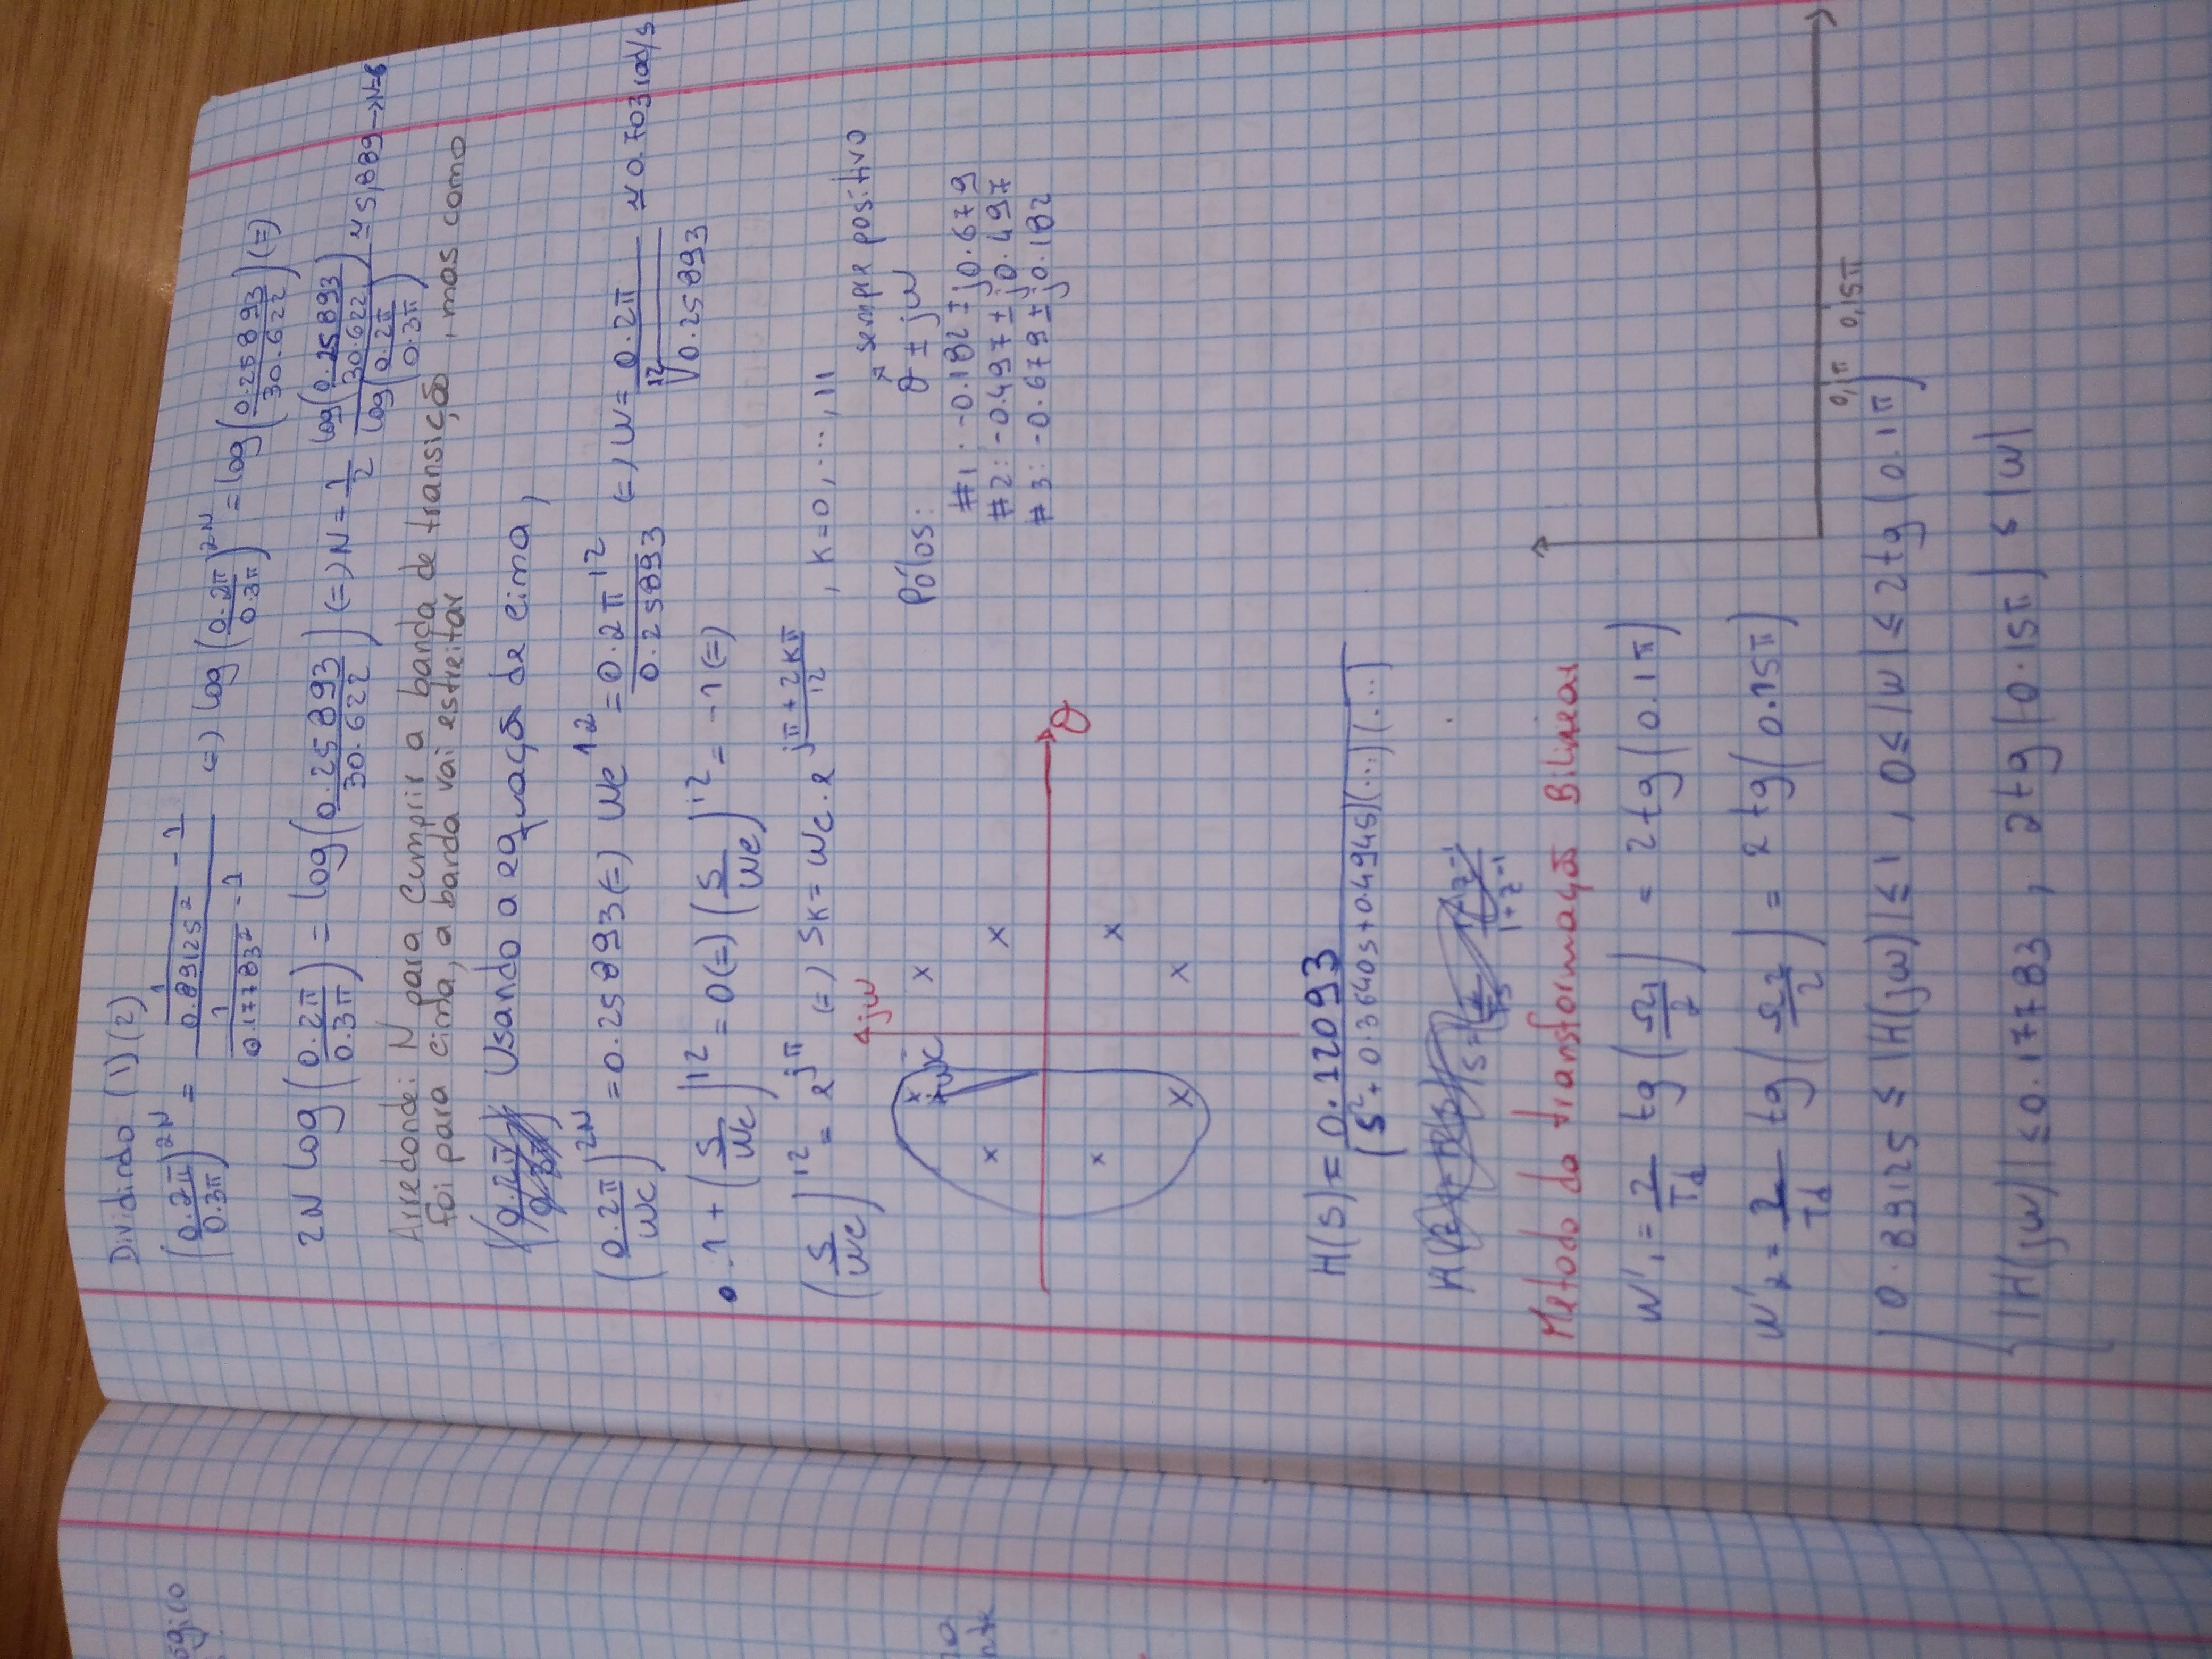 ógico
Dividindo (1)(2)
(0.2π/0.3π)^2N = (1/0.89125² - 1)/(1/0.17783² - 1) (=) log(0.2π/0.3π)^2N = log(0.25893/30.622) (=)
2N log(0.2π/0.3π) = log(0.25893/30.622) (=) N = 1/2 log(0.25893/30.622)/log(0.2π/0.3π) ≈ 5,889 → N=6
Arredondei N para cumprir a banda de transição, mas como
foi para cima, a banda vai estreitar
Usando a equação de cima,
(0.2π/wc)^2N = 0.25893 (=) wc^12 = 0.2π^12/0.25893 (=) w = 0.2π/¹²√0.25893 ≈ 0.703 rad/s
• 1 + (s/wc)^12 = 0 (=) (s/wc)^12 = -1 (=)
(s/wc)^12 = e^jπ (=) sk = wc . e^(jπ + 2kπ/12) , k=0, ..., 11
jw
wc
σ
sempre positivo
Pólos: σ ± jw
#1: -0.182 ± j0.679
#2: -0.497 ± j0.497
#3: -0.679 ± j0.182
H(s) = 0.12093/(s² + 0.3640s + 0.4945)(...)(...)
Método da transformação Bilinear
w'1 = 2/Td tg(Ω1/2) = 2 tg(0.1π)
w'2 = 2/Td tg(Ω2/2) = 2 tg(0.15π)
0,1π 0,15π
0.89125 ≤ |H(jw)| ≤ 1 , 0 ≤ |w| ≤ 2tg(0.1π)
|H(jw)| ≤ 0.17783 , 2tg(0.15π) ≤ |w|